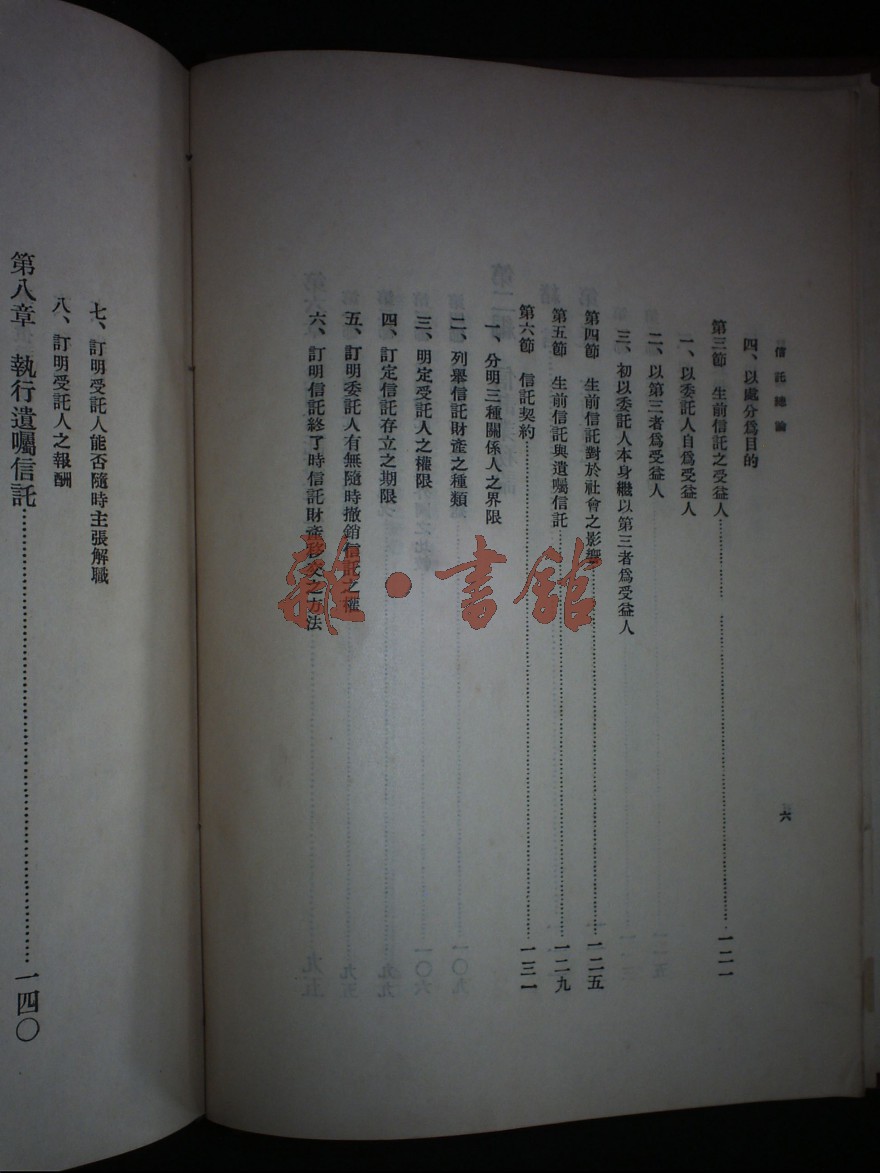 信託總論
四、以處分爲目的
第三節　生前信託之受益人…………一二一
一、以委託人自爲受益人
二、以第三者爲受益人
三、初以委託人本身繼以第三者爲受益人
第四節　生前信託對於社會之影響…………一二五
第五節　生前信託與遺囑信託…………一二九
第六節　信託契約…………一三一
一、分明三種關係人之界限
二、列舉信託財產之種類
三、明定受託人之權限
四、訂定信託存立之期限
五、訂明委託人有無隨時撤銷信託之權
六、訂明信託終了時信託財產移交之方法
六
七、訂明受託人能否隨時主張解職
八、訂明受託人之報酬
第八章　執行遺囑信託…………一四〇
雜·書館